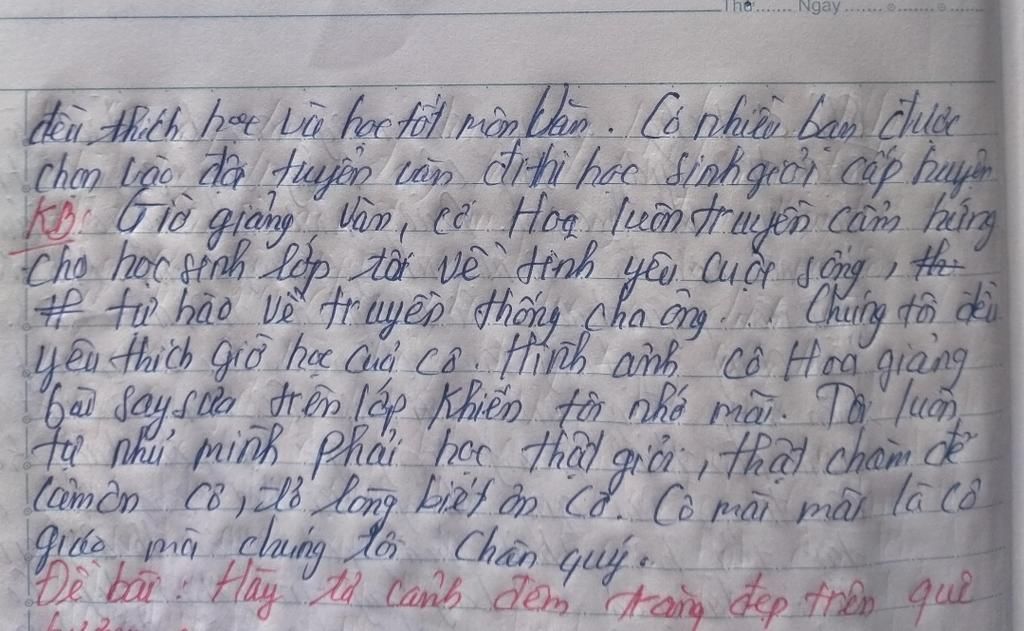 Thứ....... Ngày.................
đều thích học và học tốt môn Văn. Có nhiều bạn được
chọn vào đội tuyển văn đi thi học sinh giỏi cấp huyện
KB: Giờ giảng văn, cô Hoa luôn truyền cảm hứng
cho học sinh lớp tôi về tình yêu cuộc sống, th
tự hào về truyền thống cha ông... Chúng tôi đều
yêu thích giờ học của cô. Hình ảnh cô Hoa giảng
bài say sưa trên lớp khiến tôi nhớ mãi. Tôi luôn
tự nhủ mình phải học thật giỏi, thật chăm để
cảm ơn cô, tỏ lòng biết ơn cô. Cô mãi mãi là cô
giáo mà chúng tôi chân quý.
Đề bài: Hãy tả cảnh đêm trăng đẹp trên quê